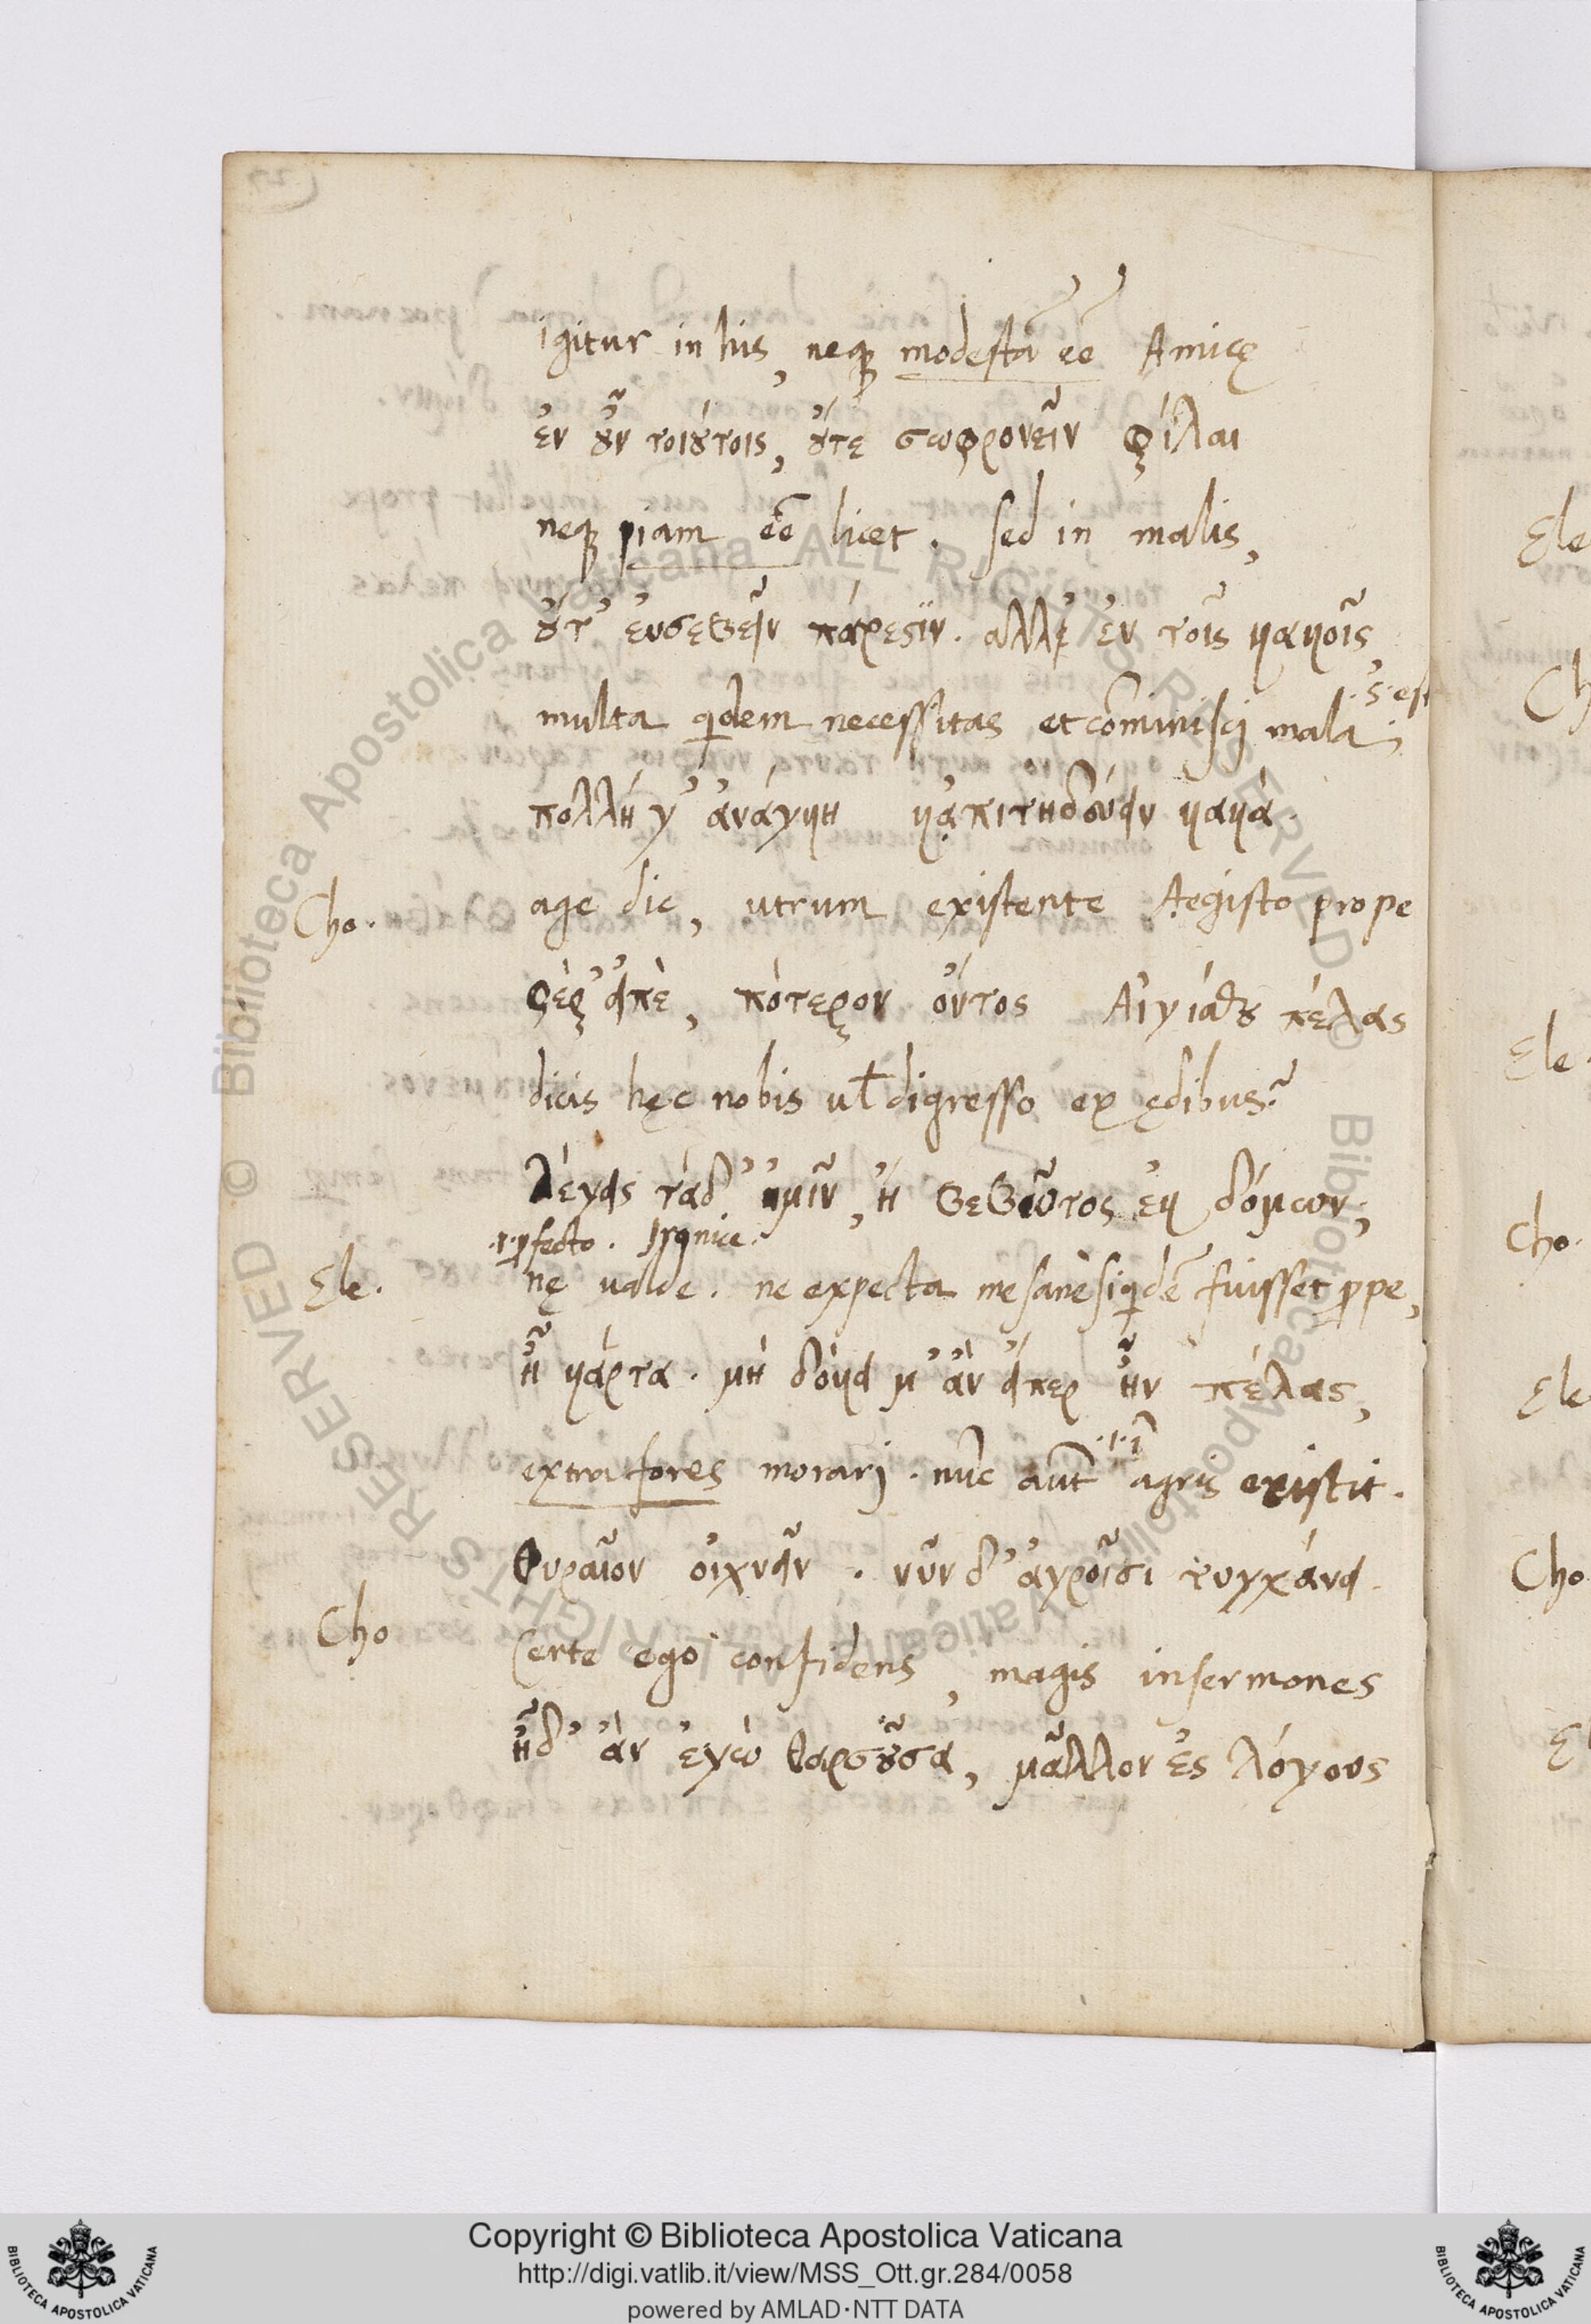 igitur in his, neqꝫ modestā ēē Amicę
ἐν ȣ̓͂ν τοιȣ́τοις, ȣ̓́τε σωφρονεῖν φίλαι
neqꝫ piam ēē licet. sed in malis,
ȣ̓́τ' εὐσεβεῖν πάρεστιν. ἀλλ' ἐν τοῖς κακοῖς,
.s. est
multa qidem necessitas et cōminisci mala;
πολλή γ' ἀνάγκη κἀπιτηδεύειν κακά.
Cho. age dic, utrum existente Aegisto prope
φέρ' εἰπὲ, πότερον ὄντος Αἰγίσθȣ πέλας
dicis hęc nobis ul̄ digresso ex ędibus?
λέγεις τάδ' ἡμῖν, ἢ βεβῶτος ἐκ δόμων;
.i. pfecto. Ironice.
Ele. nę ualde. ne expecta me sane siqidē fuisset ppe,
ἦ κάρτα. μὴ δόκει μ' ἂν εἴπερ ἦν πέλας,
.i. ī
extra fores morari. nūc aūt agris existit.
θυραῖον οἰχνεῖν. νῦν δ' ἀγροῖσι τυγχάνει.
Cho Certe ego confidens, magis in sermones
ἦ δ' ἂν ἐγὼ θαρσȣ͂σα, μᾶλλον ἐς λόγους
Ele
Ch
Ele.
Cho.
Ele
Cho
Copyright © Biblioteca Apostolica Vaticana
http://digi.vatlib.it/view/MSS_Ott.gr.284/0058
powered by AMLAD·NTT DATA
BIBLIOTECA APOSTOLICA VATICANA
BIBLIOTECA APOSTOLICA VATICANA